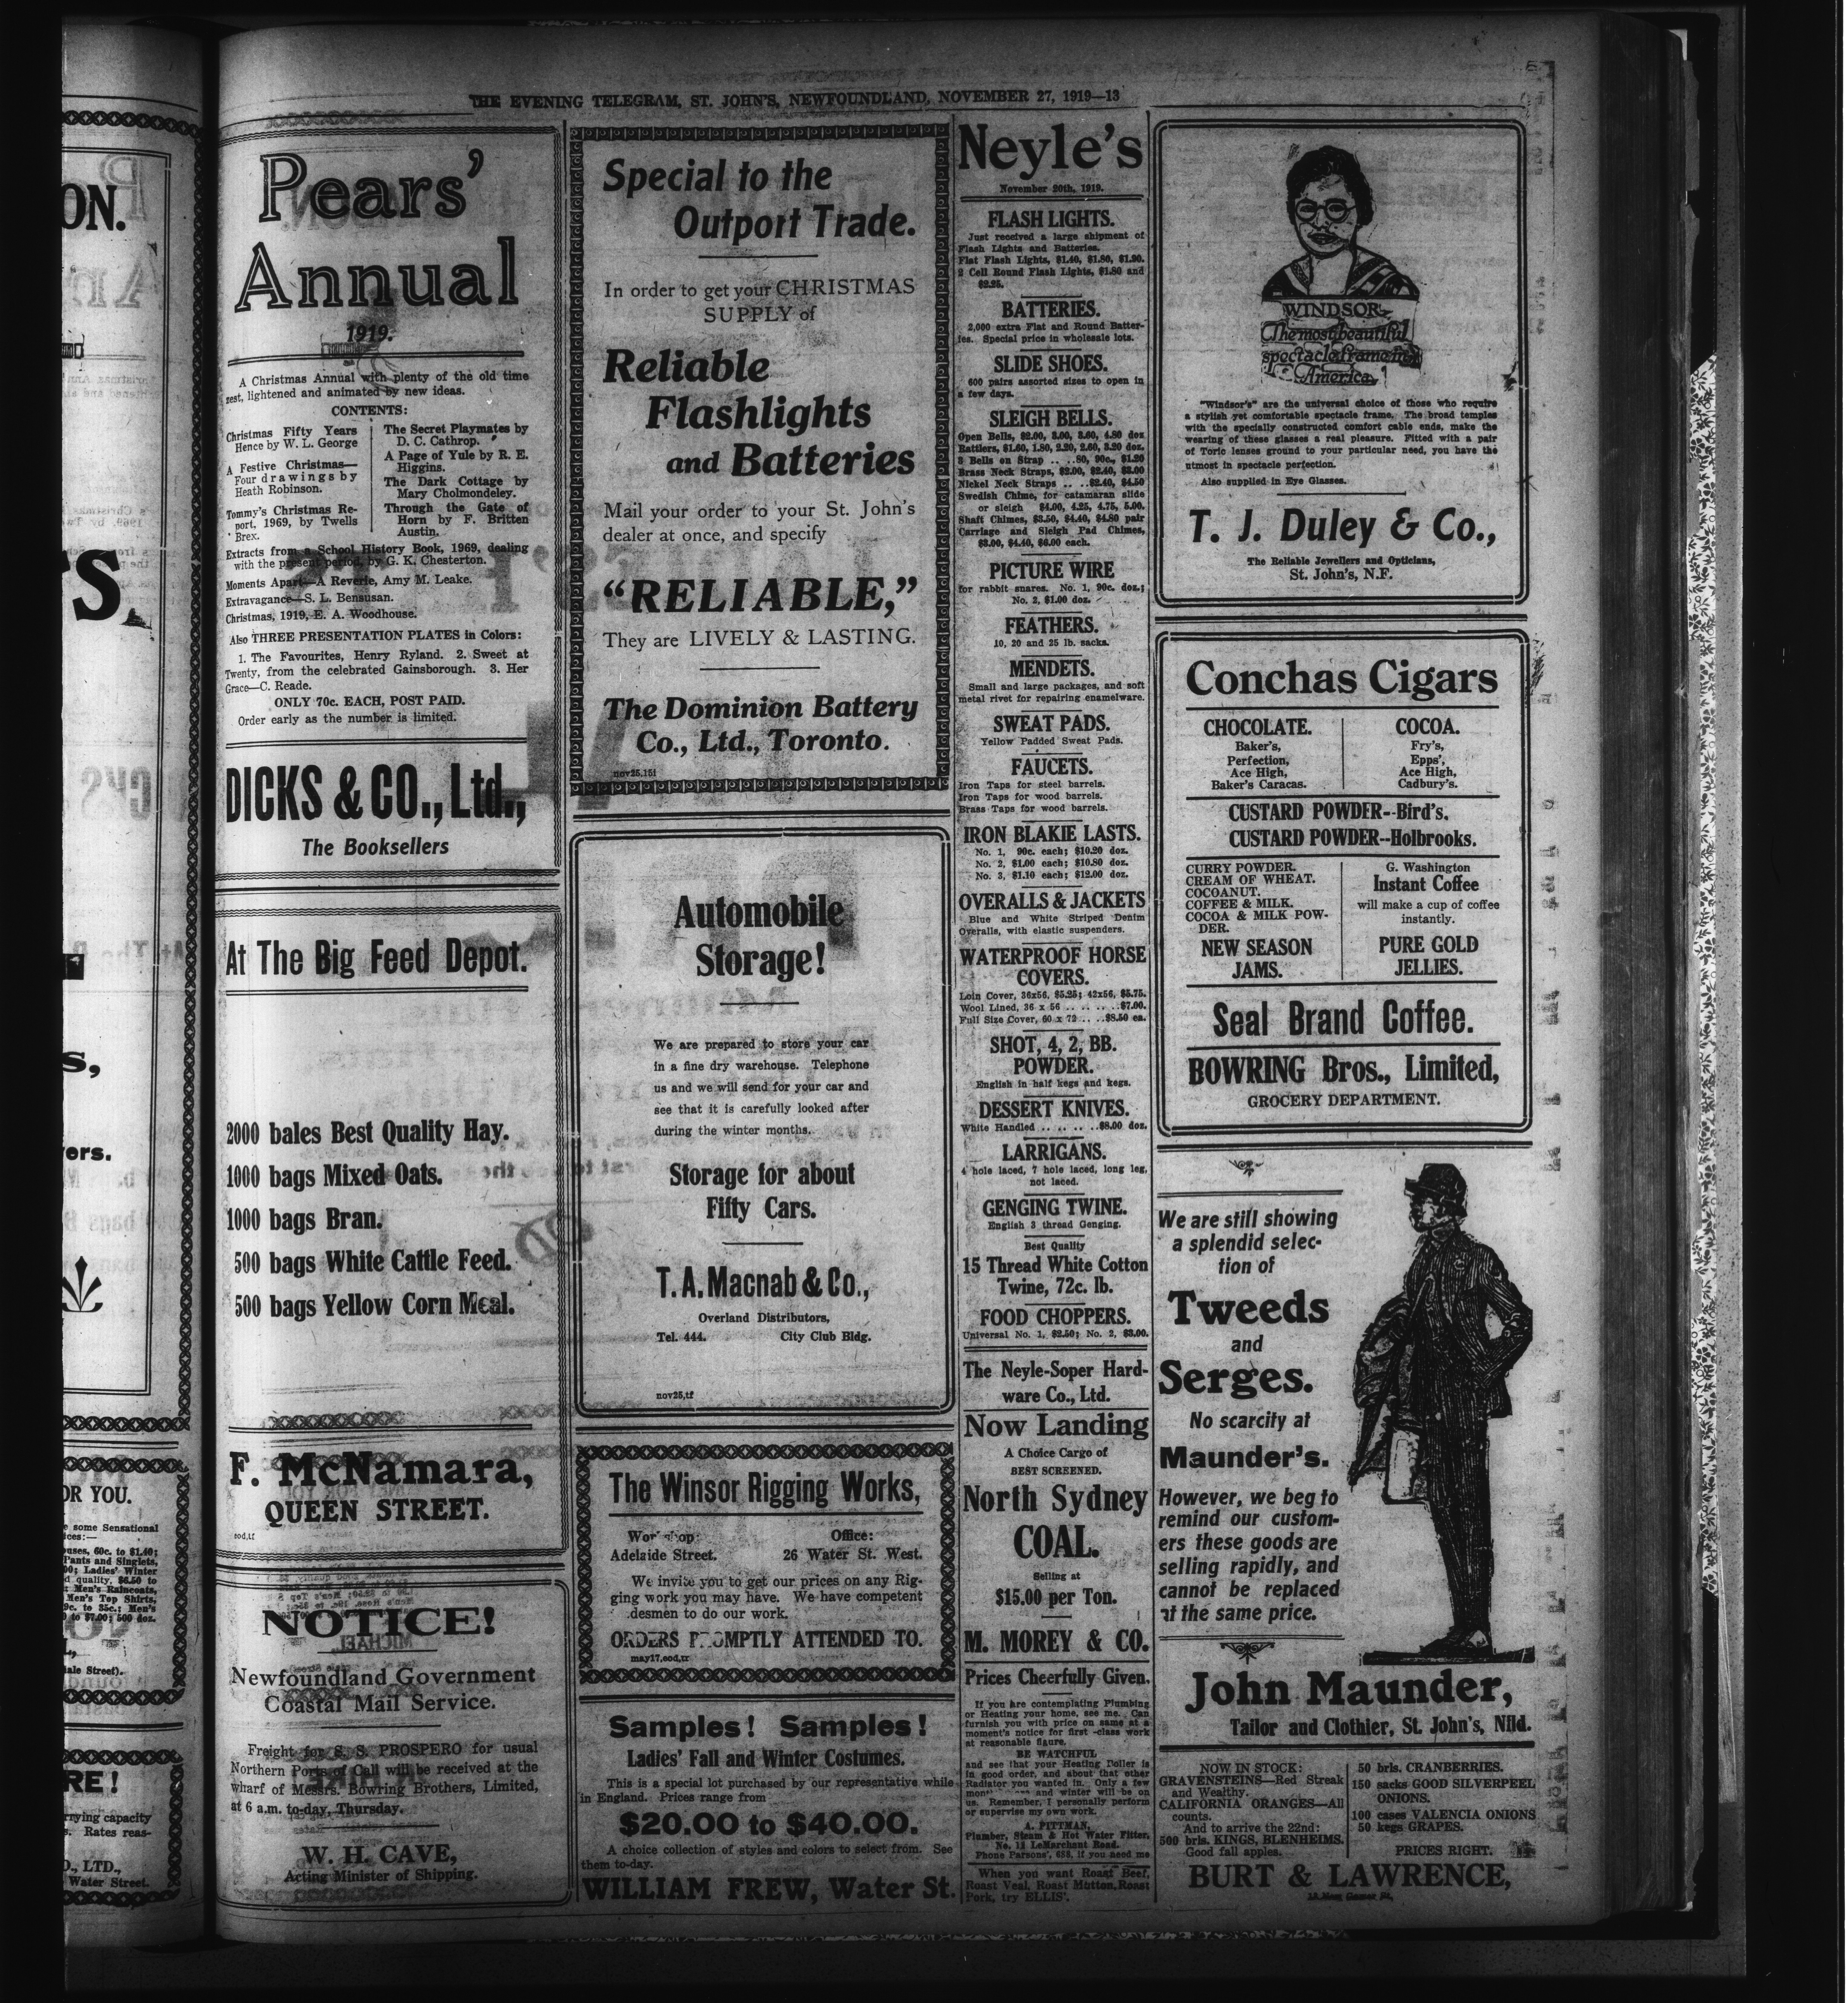 THE EVENING TELEGRAM, ST. JOHN'S, NEWFOUNDLAND, NOVEMBER 27, 1919—13
Pears'
Annual
1919.
A Christmas Annual with plenty of the old time
zest, lightened and animated by new ideas.
CONTENTS:
Christmas Fifty Years
Hence by W. L. George
A Festive Christmas—
Four drawings by
Heath Robinson.
Tommy's Christmas Re-
port, 1969, by Twells
Brex.
The Secret Playmates by
D. C. Cathrop.
A Page of Yule by R. E.
Higgins.
The Dark Cottage by
Mary Cholmondeley.
Through the Gate of
Horn by F. Britten
Austin.
Extracts from a School History Book, 1969, dealing
with the present period, by G. K. Chesterton.
Moments Apart—A Reverie, Amy M. Leake.
Extravagance—S. L. Bensusan.
Christmas, 1919, E. A. Woodhouse.
Also THREE PRESENTATION PLATES in Colors:
1. The Favourites, Henry Ryland. 2. Sweet at
Twenty, from the celebrated Gainsborough. 3. Her
Grace—C. Reade.
ONLY 70c. EACH, POST PAID.
Order early as the number is limited.
DICKS & CO., Ltd.,
The Booksellers
At The Big Feed Depot.
2000 bales Best Quality Hay.
1000 bags Mixed Oats.
1000 bags Bran.
500 bags White Cattle Feed.
500 bags Yellow Corn Meal.
F. McNamara,
QUEEN STREET.
eod,tf
NOTICE!
Newfoundland Government
Coastal Mail Service.
Freight for S. S. PROSPERO for usual
Northern Ports of Call will be received at the
wharf of Messrs. Bowring Brothers, Limited,
at 6 a.m. to-day, Thursday.
W. H. CAVE,
Acting Minister of Shipping.
Special to the
Outport Trade.
In order to get your CHRISTMAS
SUPPLY of
Reliable
Flashlights
and Batteries
Mail your order to your St. John's
dealer at once, and specify
"RELIABLE,"
They are LIVELY & LASTING.
The Dominion Battery
Co., Ltd., Toronto.
nov25,15i
Automobile
Storage!
We are prepared to store your car
in a fine dry warehouse. Telephone
us and we will send for your car and
see that it is carefully looked after
during the winter months.
Storage for about
Fifty Cars.
T. A. Macnab & Co.,
Overland Distributors,
Tel. 444. City Club Bldg.
nov25,tf
The Winsor Rigging Works,
Workshop: Office:
Adelaide Street. 26 Water St. West.
We invite you to get our prices on any Rig-
ging work you may have. We have competent
desmen to do our work.
ORDERS PROMPTLY ATTENDED TO.
may17,eod,tf
Samples! Samples!
Ladies' Fall and Winter Costumes.
This is a special lot purchased by our representative while
in England. Prices range from
$20.00 to $40.00.
A choice collection of styles and colors to select from. See
them to-day.
WILLIAM FREW, Water St.
Neyle's
November 20th, 1919.
FLASH LIGHTS.
Just received a large shipment of
Flash Lights and Batteries.
Flat Flash Lights, $1.40, $1.80, $1.90.
2 Cell Round Flash Lights, $1.80 and
$2.25.
BATTERIES.
2,000 extra Flat and Round Batter-
ies. Special price in wholesale lots.
SLIDE SHOES.
600 pairs assorted sizes to open in
a few days.
SLEIGH BELLS.
Open Bells, $2.00, 3.00, 3.60, 4.80 doz
Rattlers, $1.60, 1.80, 2.20, 2.60, 3.20 doz.
3 Bells on Strap .. ..80, 90c., $1.20
Brass Neck Straps, $2.00, $2.40, $3.00
Nickel Neck Straps .. ..$2.40, $4.50
Swedish Chime, for catamaran slide
or sleigh $4.00, 4.25, 4.75, 5.00.
Shaft Chimes, $3.50, $4.40, $4.80 pair
Carriage and Sleigh Pad Chimes,
$3.00, $4.40, $6.00 each.
PICTURE WIRE
for rabbit snares. No. 1, 90c. doz.;
No. 2, $1.00 doz.
FEATHERS.
10, 20 and 25 lb. sacks.
MENDETS.
Small and large packages, and soft
metal rivet for repairing enamelware.
SWEAT PADS.
Yellow Padded Sweat Pads.
FAUCETS.
Iron Taps for steel barrels.
Iron Taps for wood barrels.
Brass Taps for wood barrels.
IRON BLAKIE LASTS.
No. 1, 90c. each; $10.20 doz.
No. 2, $1.00 each; $10.80 doz.
No. 3, $1.10 each; $12.00 doz.
OVERALLS & JACKETS
Blue and White Striped Denim
Overalls, with elastic suspenders.
WATERPROOF HORSE
COVERS.
Loin Cover, 36x56, $5.25; 42x56, $5.75.
Wool Lined, 36 x 56 .. .. .. ..$7.00.
Full Size Cover, 60 x 72 .. ..$8.50 ea.
SHOT, 4, 2, BB.
POWDER.
English in half kegs and kegs.
DESSERT KNIVES.
White Handled .. .. .. ..$8.00 doz.
LARRIGANS.
4 hole laced, 7 hole laced, long leg,
not laced.
GENGING TWINE.
English 3 thread Genging.
Best Quality
15 Thread White Cotton
Twine, 72c. lb.
FOOD CHOPPERS.
Universal No. 1, $2.50; No. 2, $3.00.
The Neyle-Soper Hard-
ware Co., Ltd.
Now Landing
A Choice Cargo of
BEST SCREENED.
North Sydney
COAL.
Selling at
$15.00 per Ton.
M. MOREY & CO.
Prices Cheerfully Given.
If you are contemplating Plumbing
or Heating your home, see me. Can
furnish you with price on same at a
moment's notice for first-class work
at reasonable figure.
BE WATCHFUL
and see that your Heating Boiler is
in good order, and about that other
Radiator you wanted in. Only a few
and winter will be on
us. Remember, I personally perform
or supervise my own work.
A. PITTMAN,
Plumber, Steam & Hot Water Fitter,
No. 11 LeMarchant Road.
Phone Parsons', 688, if you need me
When you want Roast Beef,
Roast Veal, Roast Mutton, Roast
Pork, try ELLIS'.
WINDSOR
The most beautiful
spectacle frame in
America.
"Windsor's" are the universal choice of those who require
a stylish yet comfortable spectacle frame. The broad temples
with the specially constructed comfort cable ends, make the
wearing of these glasses a real pleasure. Fitted with a pair
of Toric lenses ground to your particular need, you have the
utmost in spectacle perfection.
Also supplied in Eye Glasses.
T. J. Duley & Co.,
The Reliable Jewellers and Opticians,
St. John's, N.F.
Conchas Cigars
CHOCOLATE.
Baker's,
Perfection,
Ace High,
Baker's Caracas.
COCOA.
Fry's,
Epps',
Ace High,
Cadbury's.
CUSTARD POWDER--Bird's.
CUSTARD POWDER--Holbrooks.
CURRY POWDER.
CREAM OF WHEAT.
COCOANUT.
COFFEE & MILK.
COCOA & MILK POW-
DER.
NEW SEASON
JAMS.
G. Washington
Instant Coffee
will make a cup of coffee
instantly.
PURE GOLD
JELLIES.
Seal Brand Coffee.
BOWRING Bros., Limited,
GROCERY DEPARTMENT.
We are still showing
a splendid selec-
tion of
Tweeds
and
Serges.
No scarcity at
Maunder's.
However, we beg to
remind our custom-
ers these goods are
selling rapidly, and
cannot be replaced
at the same price.
John Maunder,
Tailor and Clothier, St. John's, Nfld.
NOW IN STOCK:
GRAVENSTEINS—Red Streak
and Wealthy.
CALIFORNIA ORANGES—All
counts.
And to arrive the 22nd:
500 brls. KINGS, BLENHEIMS.
Good fall apples.
50 brls. CRANBERRIES.
150 sacks GOOD SILVERPEEL
ONIONS.
100 cases VALENCIA ONIONS
50 kegs GRAPES.
PRICES RIGHT.
BURT & LAWRENCE,